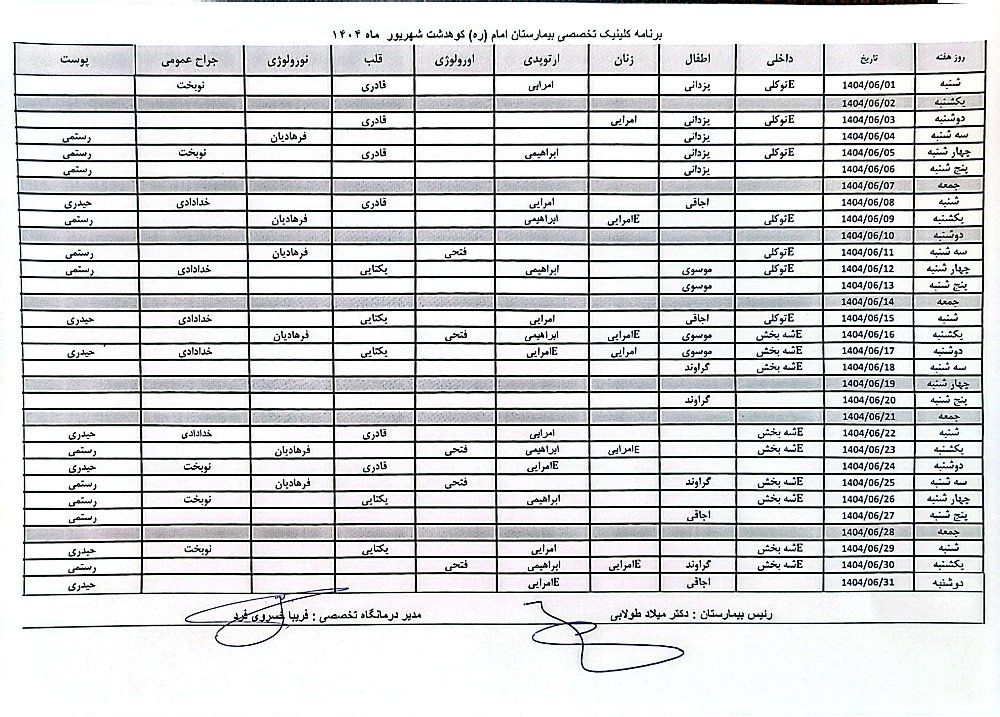 برنامه کلینیک تخصصی بیمارستان امام (ره) کوهدشت شهریور ماه ۱۴۰۴
روز هفته تاریخ داخلی اطفال زنان ارتوپدی اورولوژی قلب نورولوژی جراح عمومی پوست
شنبه 1404/06/01 Eتوکلی یزدانی امرایی قادری نوبخت
یکشنبه 1404/06/02
دوشنبه 1404/06/03 Eتوکلی یزدانی امرایی قادری
سه شنبه 1404/06/04 یزدانی فرهادیان رستمی
چهار شنبه 1404/06/05 Eتوکلی یزدانی ابراهیمی قادری نوبخت رستمی
پنج شنبه 1404/06/06 یزدانی رستمی
جمعه 1404/06/07
شنبه 1404/06/08 اجاقی امرایی قادری خدادادی حیدری
یکشنبه 1404/06/09 Eتوکلی Eامرایی ابراهیمی فرهادیان رستمی
دوشنبه 1404/06/10
سه شنبه 1404/06/11 Eتوکلی فتحی فرهادیان رستمی
چهار شنبه 1404/06/12 Eتوکلی موسوی ابراهیمی یکتایی خدادادی رستمی
پنج شنبه 1404/06/13 موسوی
جمعه 1404/06/14
شنبه 1404/06/15 Eتوکلی اجاقی امرایی یکتایی خدادادی حیدری
یکشنبه 1404/06/16 Eشه بخش موسوی Eامرایی ابراهیمی فتحی فرهادیان رستمی
دوشنبه 1404/06/17 Eشه بخش موسوی امرایی Eامرایی یکتایی خدادادی حیدری
سه شنبه 1404/06/18 Eشه بخش گراوند
چهار شنبه 1404/06/19
پنج شنبه 1404/06/20 گراوند
جمعه 1404/06/21
شنبه 1404/06/22 Eشه بخش امرایی قادری خدادادی حیدری
یکشنبه 1404/06/23 Eشه بخش Eامرایی ابراهیمی فتحی فرهادیان رستمی
دوشنبه 1404/06/24 Eامرایی قادری نوبخت حیدری
سه شنبه 1404/06/25 Eشه بخش گراوند فتحی فرهادیان رستمی
چهار شنبه 1404/06/26 Eشه بخش ابراهیمی یکتایی نوبخت رستمی
پنج شنبه 1404/06/27 اجاقی رستمی
جمعه 1404/06/28
شنبه 1404/06/29 Eشه بخش امرایی یکتایی نوبخت حیدری
یکشنبه 1404/06/30 Eشه بخش گراوند Eامرایی ابراهیمی فتحی رستمی
دوشنبه 1404/06/31 اجاقی Eامرایی حیدری
رئیس بیمارستان : دکتر میلاد طولابی مدیر درمانگاه تخصصی : فریبا خسروی فرد